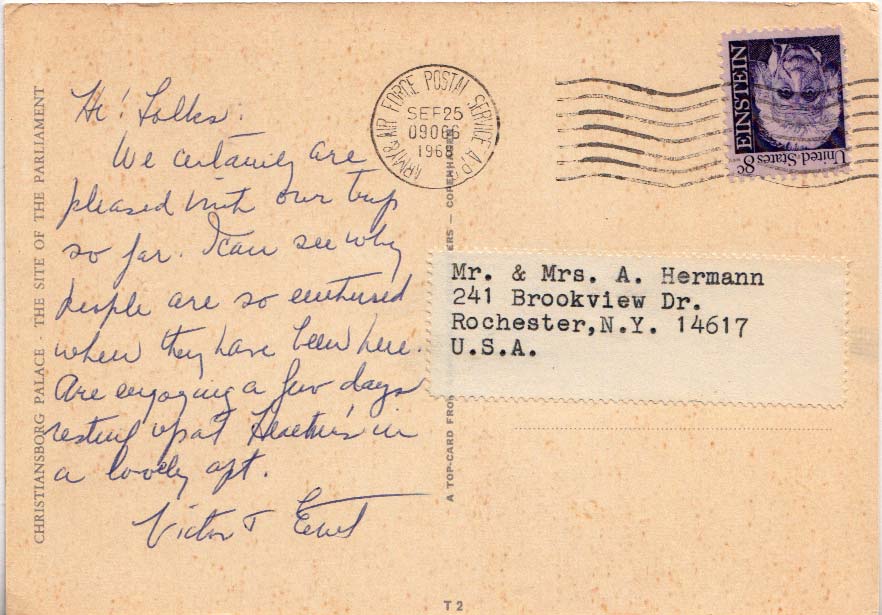 Hi! Folks:
We certainly are
pleased with our trip
so far. I can see why
people are so enthused
when they have been here.
Are enjoying a few days
resting up at Heather's in
a lovely apt.
Victor &
CHRISTIANSBORG PALACE · THE SITE OF THE PARLIAMENT
ARMY & AIR FORCE POSTAL SERVICE
SEP 25
09066
1968
EINSTEIN
United States 8c
Mr. & Mrs. A. Hermann
241 Brookview Dr.
Rochester,N.Y. 14617
U.S.A.
A TOP-CARD FROM
ERS — COPENHAGEN
T 2